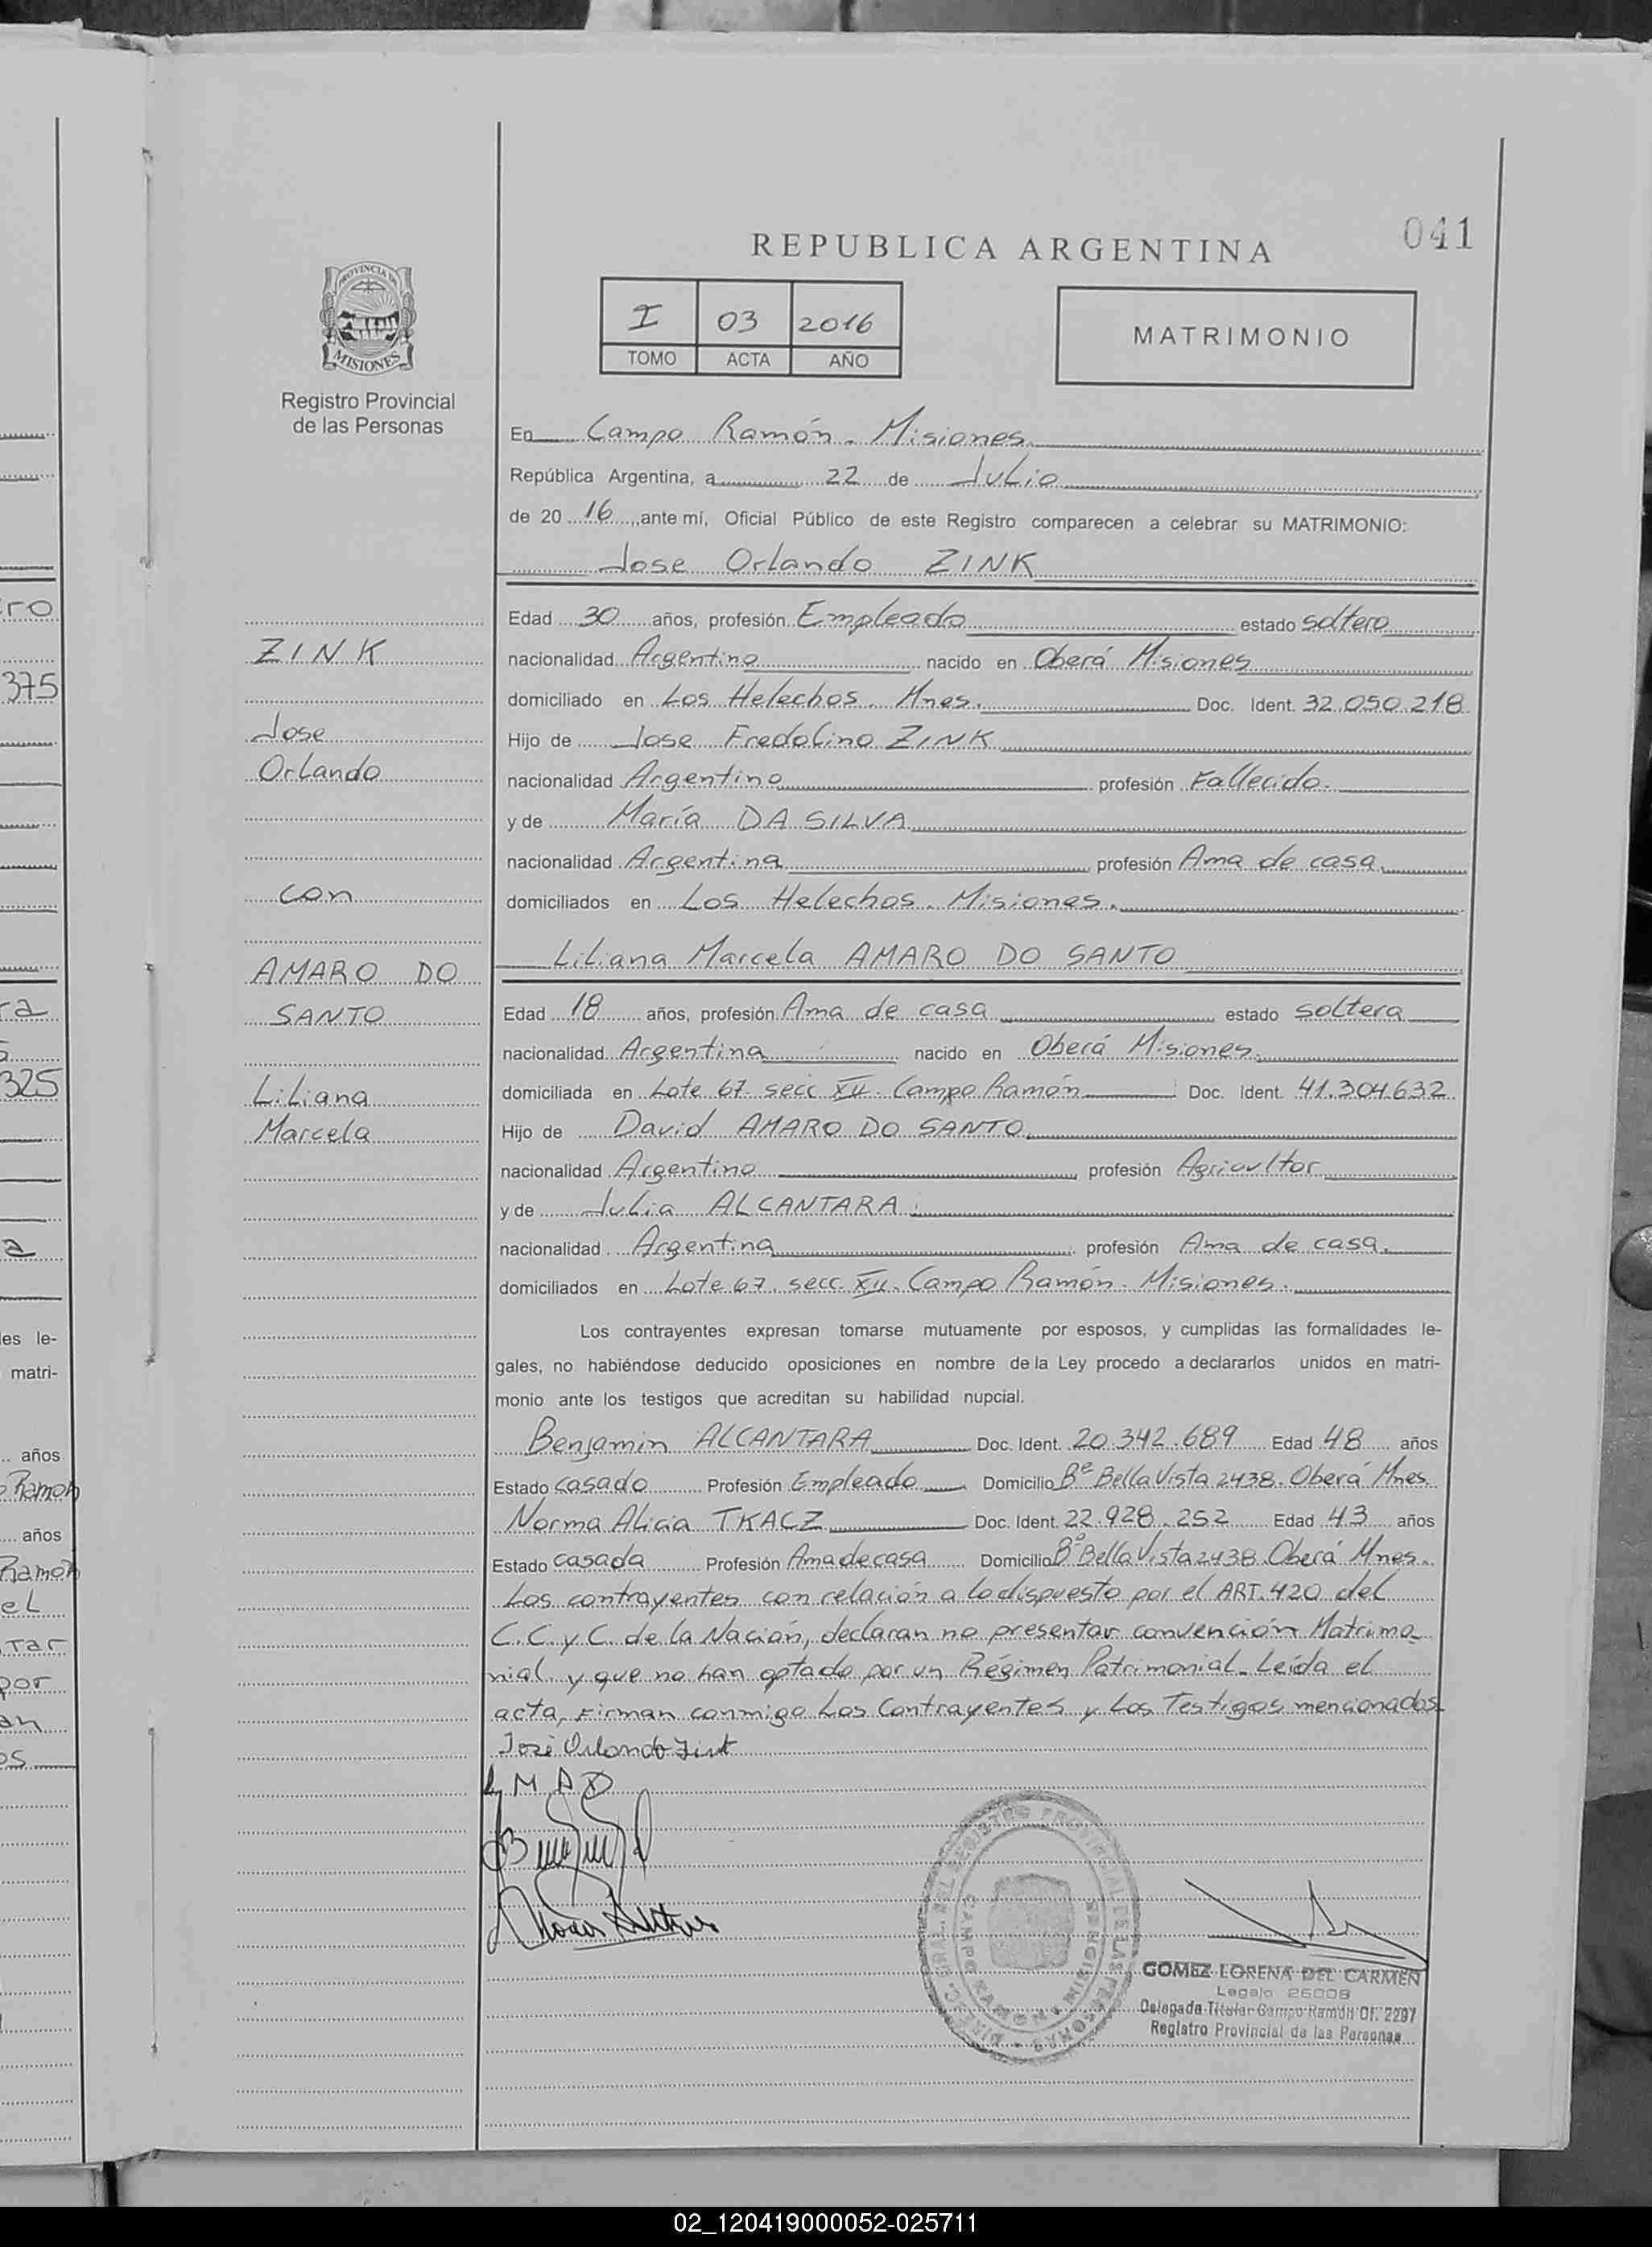 041
REPUBLICA ARGENTINA
I 03 2016
TOMO ACTA AÑO
MATRIMONIO
PROVINCIA DE
MISIONES
Registro Provincial
de las Personas
En Campo Ramón. Misiones.
República Argentina, a 22 de Julio
de 20 16, ante mí, Oficial Público de este Registro comparecen a celebrar su MATRIMONIO:
Jose Orlando ZINK
Edad 30 años, profesión Empleado estado soltero
nacionalidad Argentino nacido en Oberá Misiones
domiciliado en Los Helechos. Mnes. Doc. Ident. 32.050.218
Hijo de Jose Fredolino ZINK
nacionalidad Argentino profesión Fallecido.
y de María DA SILVA
nacionalidad Argentina profesión Ama de casa.
domiciliados en Los Helechos. Misiones.
Liliana Marcela AMARO DO SANTO
Edad 18 años, profesión Ama de casa estado soltera
nacionalidad Argentina nacido en Oberá Misiones.
domiciliada en Lote 67. secc XII. Campo Ramón Doc. Ident. 41.304.632
Hijo de David AMARO DO SANTO.
nacionalidad Argentino profesión Agricultor
y de Julia ALCANTARA.
nacionalidad Argentina profesión Ama de casa.
domiciliados en Lote 67. secc. XII. Campo Ramón. Misiones.
Los contrayentes expresan tomarse mutuamente por esposos, y cumplidas las formalidades le-
gales, no habiéndose deducido oposiciones en nombre de la Ley procedo a declararlos unidos en matri-
monio ante los testigos que acreditan su habilidad nupcial.
Benjamin ALCANTARA Doc. Ident. 20.342.689 Edad 48 años
Estado casado Profesión Empleado Domicilio Bº Bella Vista 2438. Oberá Mnes
Norma Alicia TKACZ Doc. Ident. 22.928.252 Edad 43 años
Estado casada Profesión Ama de casa Domicilio Bº Bella Vista 2438 Oberá Mnes.
Los contrayentes con relación a lo dispuesto por el ART. 420 del
C.C. y C. de la Nación, declaran no presentar convención Matrimo-
nial y que no han optado por un Régimen Patrimonial. Leída el
acta, Firman conmigo Los Contrayentes y Los Testigos mencionados
José Orlando Zink
L M A D
ZINK
Jose
Orlando
con
AMARO DO
SANTO
Liliana
Marcela
CAMPO RAMON
MISIONES
GOMEZ LORENA DEL CARMEN
Legajo 26008
Delegada Titular Campo Ramón Of. 2297
Registro Provincial de las Personas
ro
375
ra
325
a
les le-
matri-
años
Ramon
años
Ramon
eL
Tar
por
an
os
02_120419000052-025711